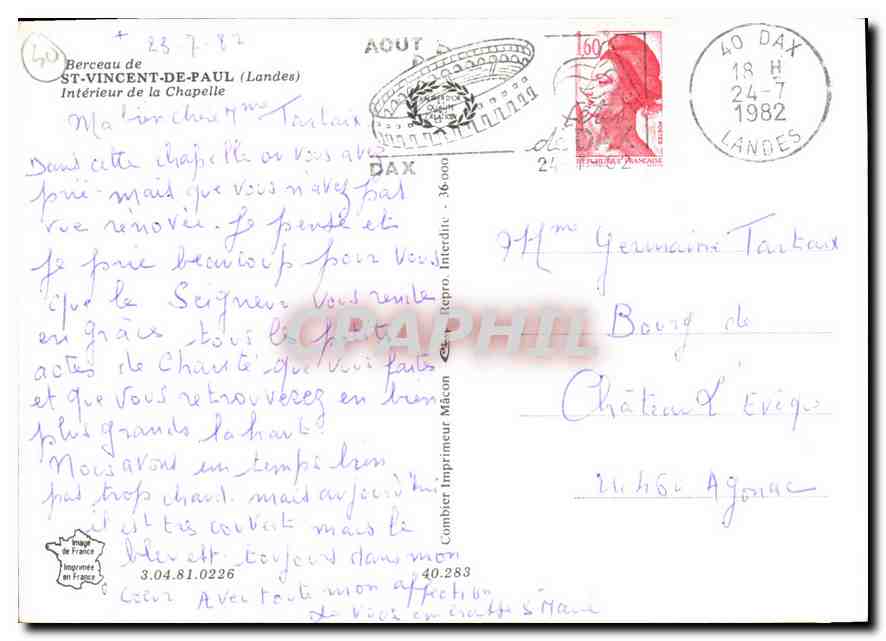 40
+ 23-7-82
Berceau de
ST-VINCENT-DE-PAUL (Landes)
Intérieur de la Chapelle
Ma bien chère Mme Tartaix
Dans cette chapelle où vous avez
prié - mais que vous n'avez pas
vue rénovée. Je pense et
je prie beaucoup pour vous
que le Seigneur vous rende
en grâces tous les petits
actes de Charité que vous faites
et que vous retrouverez en bien
plus grands là haut.
Nous avons un temps bien
pas trop chaud. mais aujourd'hui
il est très couvert mais le
bleu est toujours dans mon
coeur Avec toute mon affection
Image
de France
Imprimée
en France
3.04.81.0226
40.283
Combier Imprimeur Mâcon
Repro. Interdite - 36 000
CPAPHIL
AOUT
DAX
de DAX
1,60
POSTES
REPUBLIQUE FRANÇAISE
40 DAX
18 H
24-7
1982
LANDES
Mme Germaine Tartaix
Bourg de
Château L'Evêque
24460 Agonac